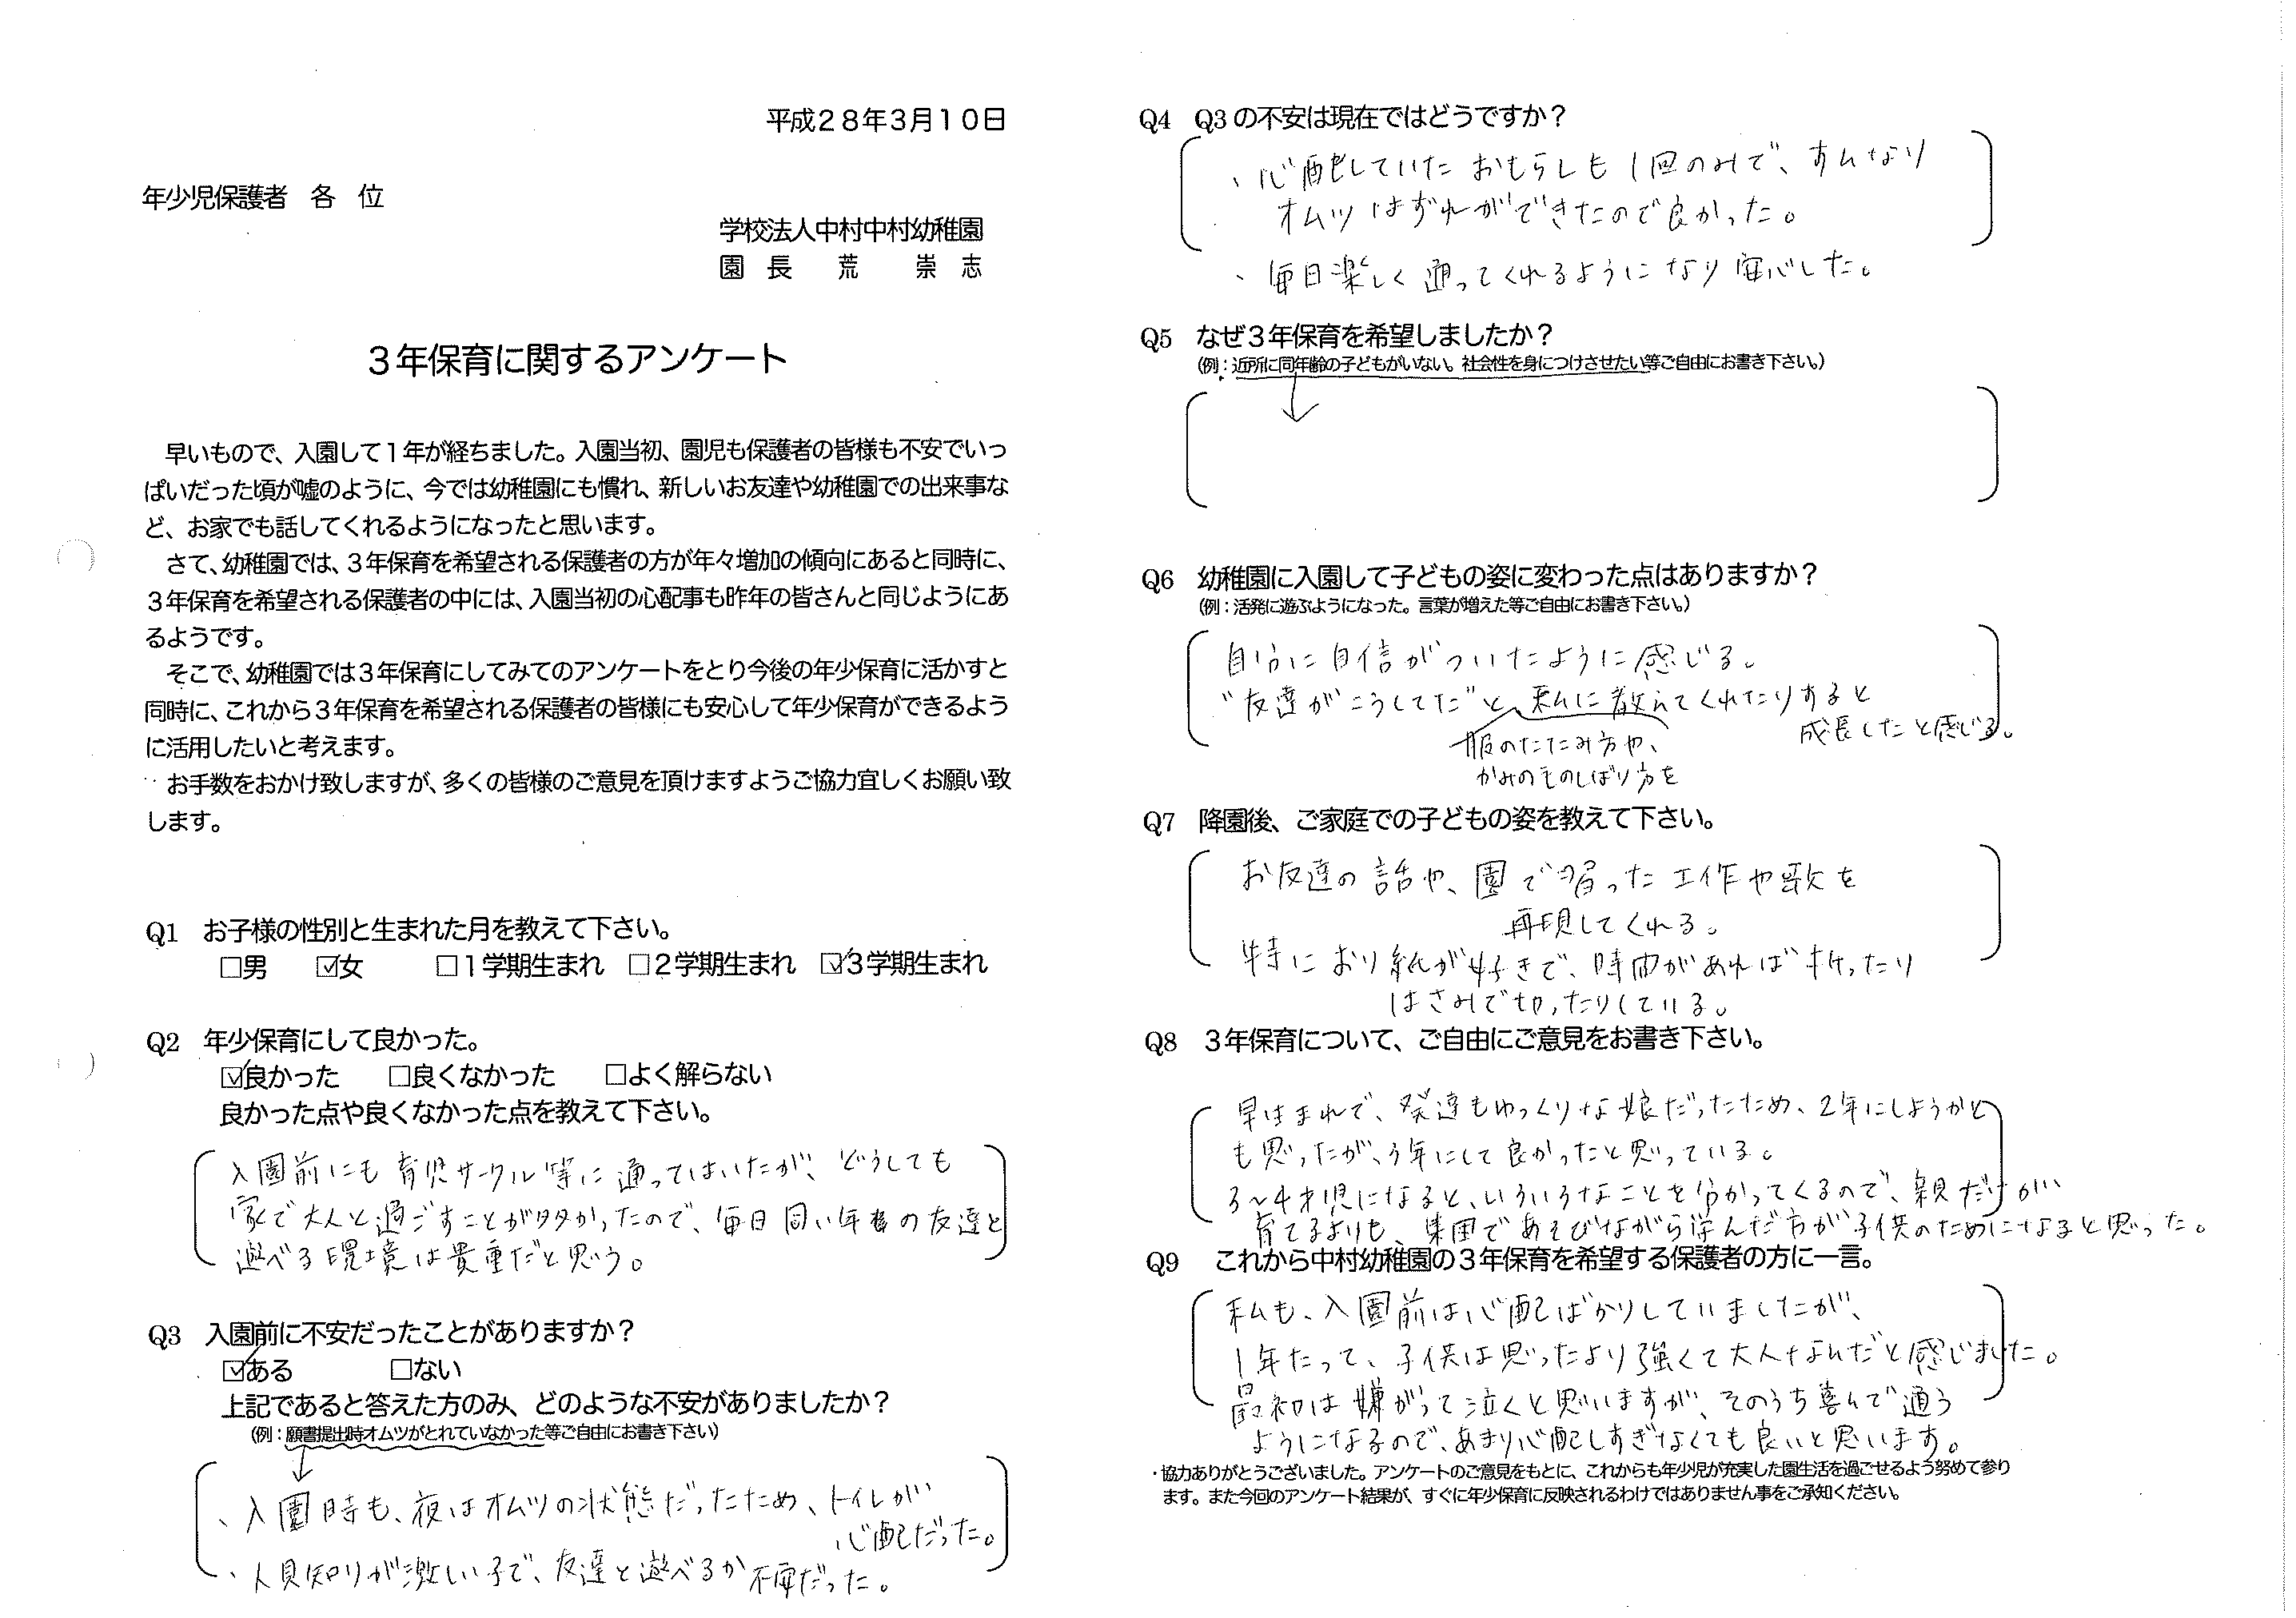 平成２８年３月１０日
年少児保護者　各　位
学校法人中村中村幼稚園
園　長　　荒　　崇　志
３年保育に関するアンケート
早いもので、入園して１年が経ちました。入園当初、園児も保護者の皆様も不安でいっ
ぱいだった頃が嘘のように、今では幼稚園にも慣れ、新しいお友達や幼稚園での出来事な
ど、お家でも話してくれるようになったと思います。
さて、幼稚園では、３年保育を希望される保護者の方が年々増加の傾向にあると同時に、
３年保育を希望される保護者の中には、入園当初の心配事も昨年の皆さんと同じようにあ
るようです。
そこで、幼稚園では３年保育にしてみてのアンケートをとり今後の年少保育に活かすと
同時に、これから３年保育を希望される保護者の皆様にも安心して年少保育ができるよう
に活用したいと考えます。
お手数をおかけ致しますが、多くの皆様のご意見を頂けますようご協力宜しくお願い致
します。
Q1　お子様の性別と生まれた月を教えて下さい。
□男　☑女　□１学期生まれ　□２学期生まれ　☑３学期生まれ
Q2　年少保育にして良かった。
☑良かった　□良くなかった　□よく解らない
良かった点や良くなかった点を教えて下さい。
入園前にも育児サークル等に通ってはいたが、どうしても
家で大人と過ごすことが多かったので、毎日同い年者の友達と
遊べる環境は貴重だと思う。
Q3　入園前に不安だったことがありますか？
☑ある　□ない
上記であると答えた方のみ、どのような不安がありましたか？
（例：願書提出時オムツがとれていなかった等ご自由にお書き下さい）
↓
、入園時も、夜はオムツの状態だったため、トイレが
心配だった。
、人見知りが激しい子で、友達と遊べるか不安だった。
Q4　Q3の不安は現在ではどうですか？
、心配していたおもらしも１回のみで、すんなり
オムツはずれができたので良かった。
、毎日楽しく通ってくれるようになり安心した。
Q5　なぜ３年保育を希望しましたか？
（例：近所に同年齢の子どもがいない。社会性を身につけさせたい等ご自由にお書き下さい。）
↓
Q6　幼稚園に入園して子どもの姿に変わった点はありますか？
（例：活発に遊ぶようになった。言葉が増えた等ご自由にお書き下さい。）
自分に自信がついたように感じる。
“友達がこうしてた”と、私に教えてくれたりすると
成長したと感じる。
服のたたみ方や、
かみのものしばり方を
Q7　降園後、ご家庭での子どもの姿を教えて下さい。
お友達の話や、園で習った工作や歌を
再現してくれる。
特におり紙が好きで、時間があれば折ったり
はさみで切ったりしている。
Q8　３年保育について、ご自由にご意見をお書き下さい。
早生まれで、発達もゆっくりな娘だったため、2年にしようかと
も思ったが、3年にして良かったと思っている。
3～4才児になると、いろいろなことを分かってくるので、親だけが
育てるよりも、集団であそびながら学んだ方が子供のためになると思った。
Q9　これから中村幼稚園の３年保育を希望する保護者の方に一言。
私も、入園前は心配ばかりしていましたが、
1年たって、子供は思ったより強くて大人なんだと感じました。
最初は嫌がって泣くと思いますが、そのうち喜んで通う
ようになるので、あまり心配しすぎなくても良いと思います。
・協力ありがとうございました。アンケートのご意見をもとに、これからも年少児が充実した園生活を過ごせるよう努めて参り
ます。また今回のアンケート結果が、すぐに年少保育に反映されるわけではありません事をご承知ください。